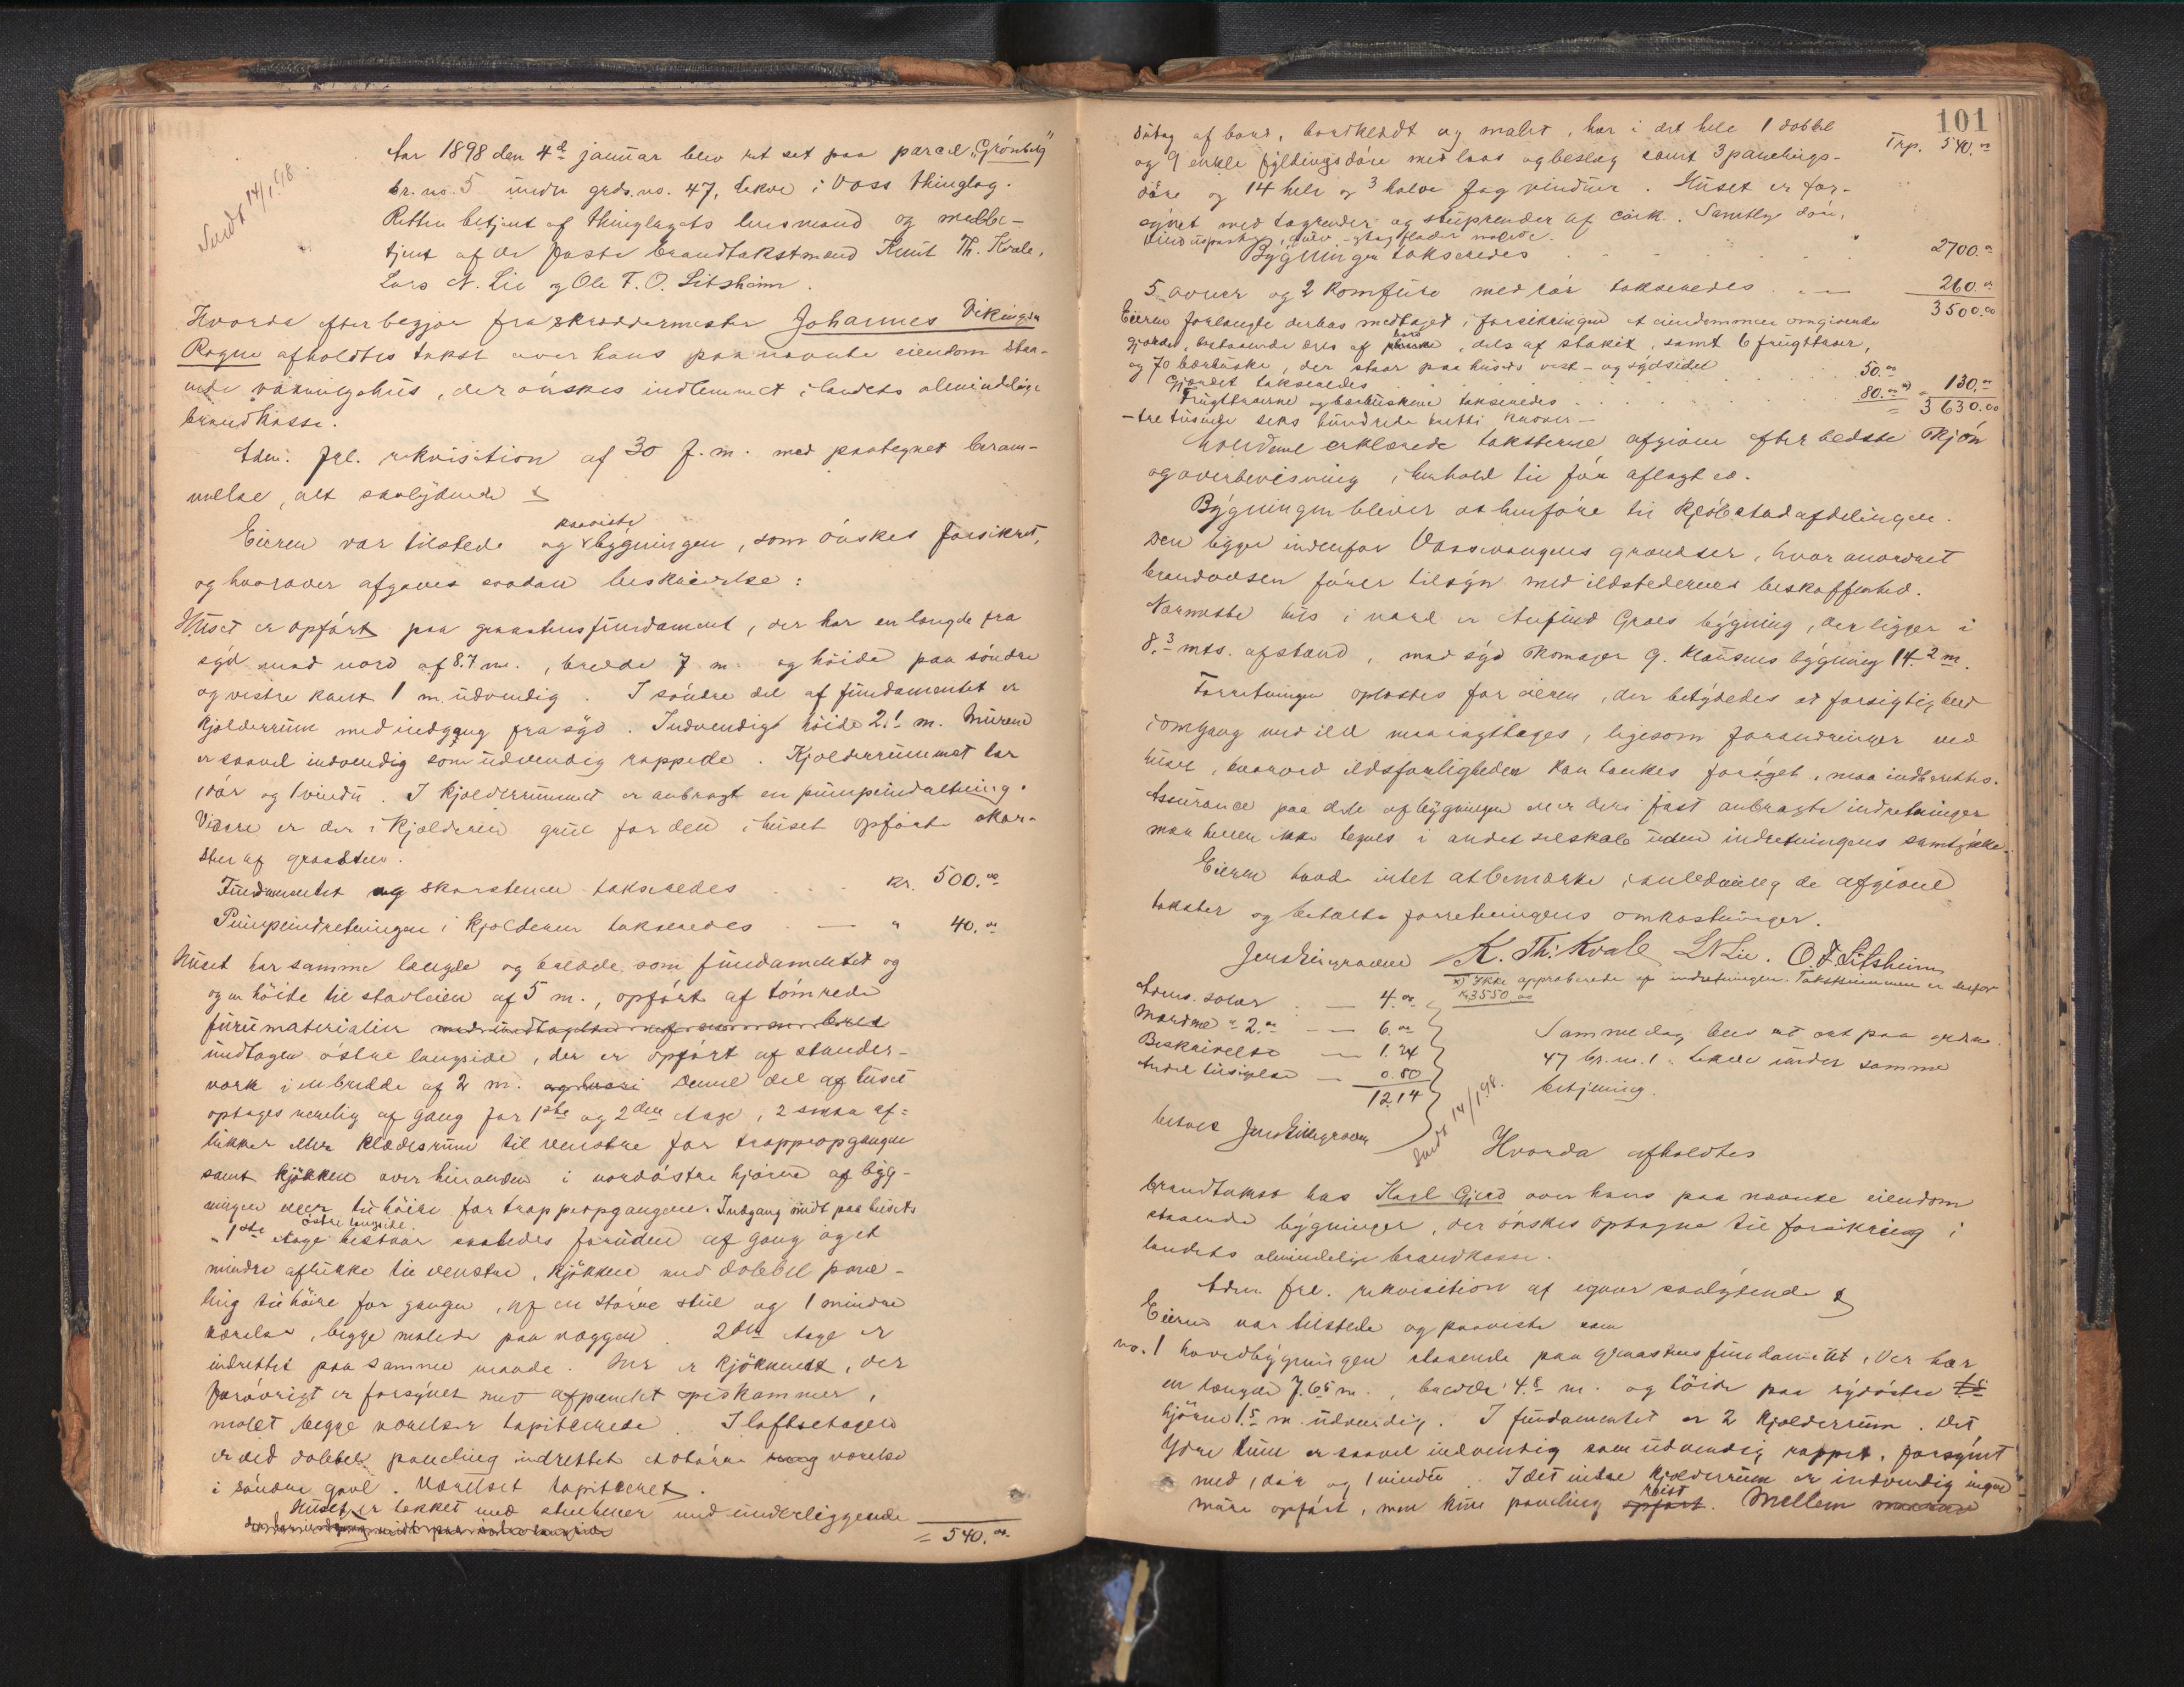 Sendt 14/1 98.
Aar 1898 den 4de januar blev ret sat paa parcel "Grönberg"
br. no. 5 under grds. no. 47, Lekve i Voss thinglag.
Retten betjent af thinglagets lensmand og meddbe-
tjent af de faste brandtakstmænd Knut Th. Kvale,
Lars N. Lie og Ole T. O. Sitsheim.
Hvorda efter begjær fra skræddermester Johannes Vikingsen
Rogne afholdtes takst over hans paa nævnte eiendom staa-
ende vaaningshus, der önskes indlemmet i landets almindelige
brandkasse.
Adm. frl. rekvisition af 30 f. m. med paategnet beram-
melse, alt saalydende
Eieren var tilstede og paaviste bygningen, som önskes forsikret,
og hvorover afgaves saadan beskrivelse:
Huset er opfört paa graastensfundament, der har en længde fra
syd mod nord af 8.7 m., bredde 7 m. og höide paa söndre
og vestre kant 1 m. udvendig. I söndre del af fundamentet er
kjelderrum med indgang fra syd. Indvendig höide 2.1 m. Murene
er saavel indvendig som udvendig rappede. Kjelderrummet har
1 dör og 1 vindu. I kjelderrummet er anbragt en pumpeindretning.
Videre er der i kjelderen grue for den i huset opförte skor-
sten af graasten.
Fundamentet og skorstenen takseredes . . . kr. 500.00
Pumpeindretningen i kjelderen takseredes . — " 40.00
Huset har samme længde og bredde som fundamentet og
og en höide til stavleien af 5 m., opfört af tömrede
furumaterialier med undtagelse af
undtagen östre langside, der er opfört af stander-
værk i en bredde af 2 m. Denne del af huset
optages nemlig af gang for 1ste og 2den etage, 2 smaa af-
lukker eller klædesrum til venstre for trappeopgangen
samt kjökken over hinanden i nordöstre hjörne af byg-
ningen eller til höire for trappeopgangen. Indgang midt paa husets
östre langside.
" 1ste etage bestaar saaledes foruden af gang og et
mindre aflukke til venstre, kjökken med dobbel pane-
ling til höire for gangen, af en större stue og 1 mindre
værelse, begge malede paa væggen. 2den etage er
indrettet paa samme maade. Her er kjökkenet, der
forövrigt er forsynet med afpanelet spiskammer,
malet, begge værelser tapiserede. I loftsetagen
er ved dobbel paneling indrettet et större værelse
i söndre gavl. Værelset tapiseret.
Huset er tækket med stenhener med underliggende
= 540.00
101
sutag af bord, bordklædt og malet, har i det hele 1 dobbel
Trp. 540.00
og 9 enkle fyldingsdöre med laas og beslag samt 3 panelings-
döre og 14 hele og 3 halve fag vinduer. Huset er for-
synet med tagrender og stuprender af cink. Samtlige döre,
vinduspaabyg, gulv- og tagflader malede.
Bygningen takseredes . . . . . . 2700.00
5 ovner og 2 komfure med rör takseredes . — 260.00
3500.00
Eieren forlangte derhos medtaget i forsikringen et eiendommen omgivende
gjærde, bestaaende dels af bord, dels af stakit, samt 6 frugttræer,
og 70 bærbuske, der staar paa husets vest- og sydside
Gjærdet takseredes . . . . 50.00
Frugttræerne og bærbuskene takseredes . . . 80.00 x) = 130.00
= 3630.00
— tre tusinde seks hundrede tretti kroner —
Mændene erklærede taksterne afgivne efter bedste skjön
og overbevisning i henhold til för aflagt ed.
Bygningen bliver at henföre til kjöbstadafdelingen.
Den ligger indenfor Vossevangens grændser, hvor anordnet
brandvæsen förer tilsyn med ildstedernes beskaffenhed.
Nærmeste hus i nord er Anfind Graes bygning, der ligger i
8.3 mts. afstand, mod syd skomager G. Klausens bygning 14.2 m.
Forretningen oplæstes for eieren, der betydedes at forsigtighed
i omgang med ild maa iagttages, ligesom forandringer ved
huset, hvorved ildsfarligheden kan tænkes foröget, maa indberettes.
Assurance paa dele af bygningen eller dens fast anbragte indretninger
maa heller ikke tegnes i andet selskab uden indretningens samtykke.
Eieren havde intet at bemærke i anledning de afgivne
takster og betalte forretningens omkostninger.
Jens Lirgraven K. Th: Kvale LNLie. O. T. Sitsheim
x) Ikke approberede af indretningen. Takstsummen er derfor
Kr 3550 00
Adms. salær . — 4.00
Mændene " 2.00 — 6.00
Beskrivelse — 1.34
Andel — 0.80
12.14
betalt Jens Lirgraven
Sendt 14/1 98.
Samme dag blev ret sat paa grds.no.
47 br. no. 1. Lekve under samme
betjening.
Hvorda afholdtes
brandtakst hos Karl Gjerd over hans paa nævnte eiendom
staaende bygninger, der önskes optagne til forsikring i
landets almindelige brandkasse.
Adm. frl. rekvisition af igaar saalydende
Eieren var tilstede og paaviste som
no. 1 hovedbygningen staaende paa graastensfundament, der har
en længde 7.65 m., bredde 4.8 m. og höide paa sydöstre
hjörne 1.5 m. udvendig. I fundamentet er 2 kjelderrum. Det
ydre rum er saavel indvendig som udvendig rappet, forsynet
med 1 dör og 1 vindu. I det indre kjelderrum er indvendig ingen
mure opfört, men kun paneling reist. Mellem